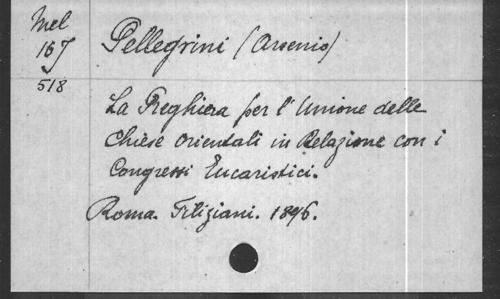 Mel
167
518
Pellegrini (Arsenio)
La Preghiera per l'Unione delle
Chiese Orientali in Relazione con i
Congressi Eucaristici.
Roma. Filiziani. 1896.